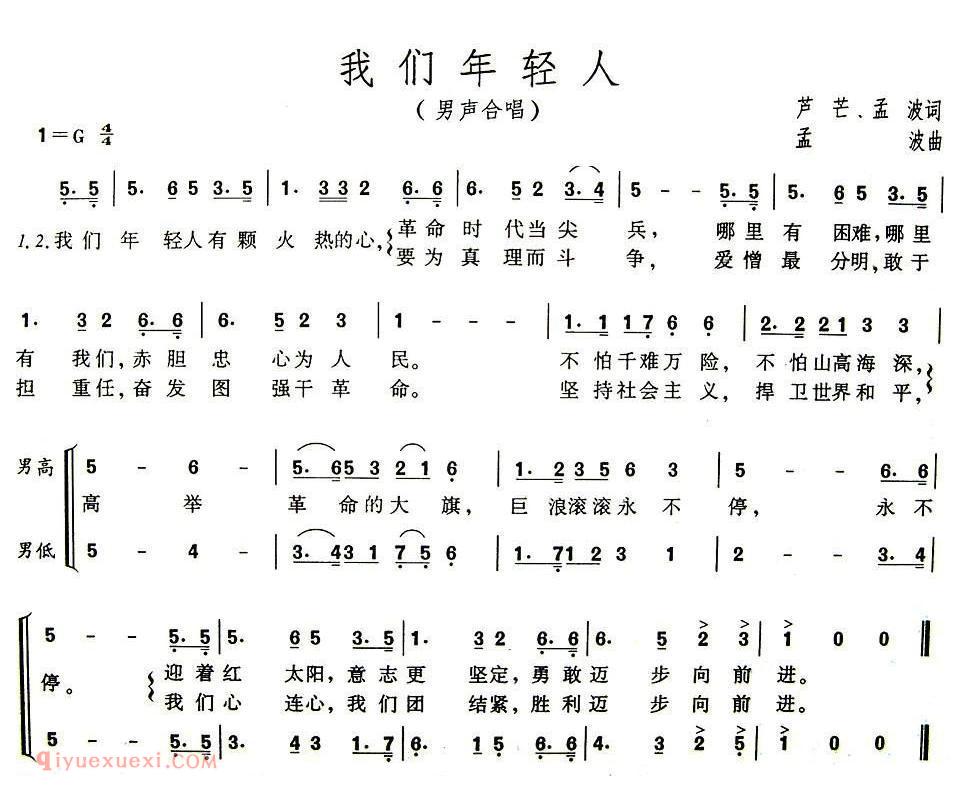 我们年轻人
（男声合唱）
芦芒、孟波词
1=G 4/4
孟波曲
5. 5 | 5. 6 5 3. 5 | 1. 3 3 2 6. 6 | 6. 5 2 3. 4 | 5 - - 5. 5 | 5. 6 5 3. 5 |
1.2.我们年轻人有颗火热的心，革命时代当尖兵，哪里有困难，哪里
要为真理而斗争，爱憎最分明，敢于
1. 3 2 6. 6 | 6. 5 2 3 | 1 - - - | 1. 1 1 7 6 6 | 2. 2 2 1 3 3 |
有我们，赤胆忠心为人民。不怕千难万险，不怕山高海深，
担重任，奋发图强干革命。坚持社会主义，捍卫世界和平，
男高 5 - 6 - | 5. 6 5 3 2 1 6 | 1. 2 3 5 6 3 | 5 - - 6. 6 |
高举革命的大旗，巨浪滚滚永不停，永不
男低 5 - 4 - | 3. 4 3 1 7 5 6 | 1. 7 1 2 3 1 | 2 - - 3. 4 |
5 - - 5. 5 | 5. 6 5 3. 5 | 1. 3 2 6. 6 | 6. 5 2 3 | 1 0 0 ‖
停。迎着红太阳，意志更坚定，勇敢迈步向前进。
我们心连心，我们团结紧，胜利迈步向前进。
5 - - 5. 5 | 3. 4 3 1. 7 | 6. 1 5 6. 6 | 4. 3 2 5 | 1 0 0 ‖
qiyuexuexi.com